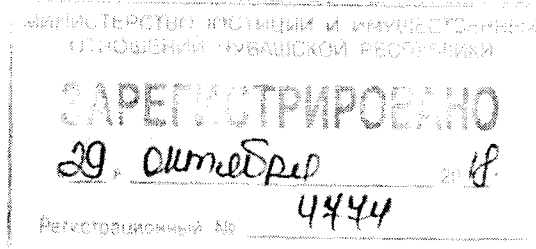 МИНИСТЕРСТВО ЮСТИЦИИ И ИМУЩЕСТВЕННЫХ
ОТНОШЕНИЙ ЧУВАШСКОЙ РЕСПУБЛИКИ
ЗАРЕГИСТРИРОВАНО
29 октября 2018
Регистрационный № 4774